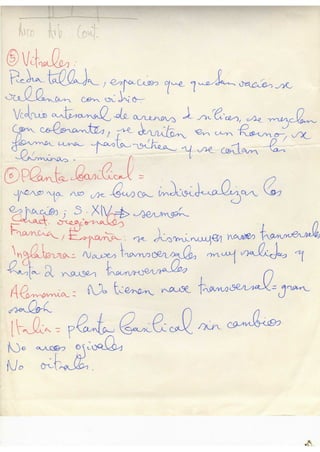 Arco Arb Cont.
⑤ Vitrales:
Piedra tallada, espacios que quedan vacíos se
rellenan con vidrio
Vidrio artesanal de arenas d sílices, se mezclan
con colorantes, se derriten en un horno, se
forma una pasta vítrea y se cortan las
láminas.
⑥ Planta basilical =
pero ya no se busca individualizar los
espacios; S. XIV → sermón
Caract. regionales
Francia, España: se disminuyen naves transversales
Inglaterra = naves transversales muy salidas y
hasta 2 naves transversales
Alemania = No tienen nave transversal = gran
salón
Italia = planta basilical sin cambios
No arcos ogivales
No vitrales.